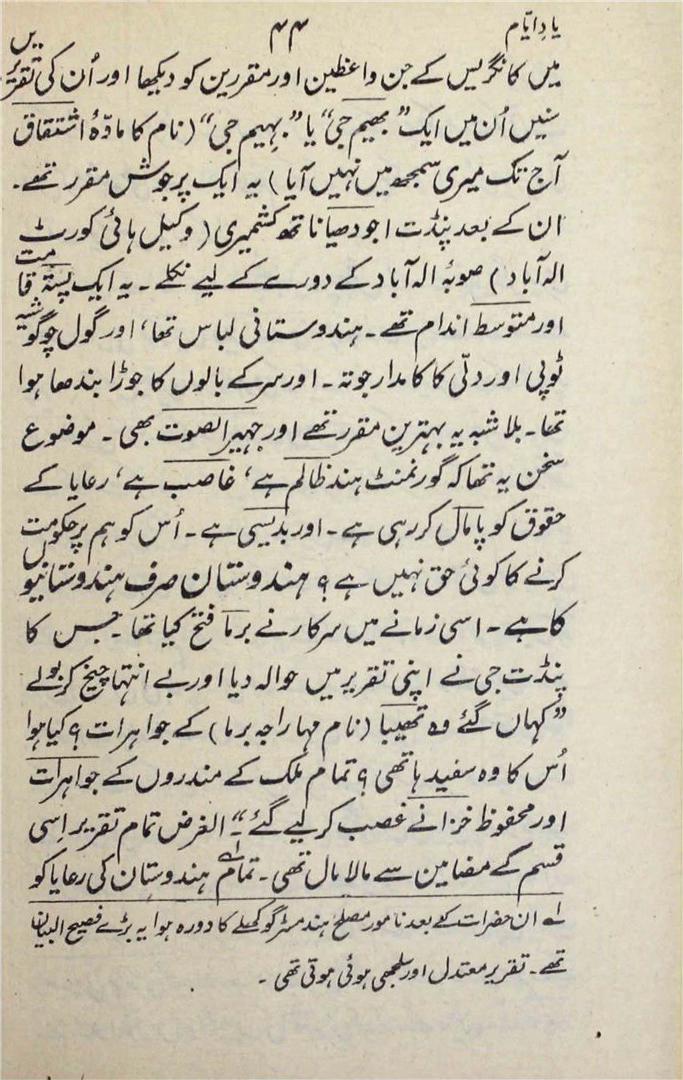 یادِ ایّام ۴۴
میں کانگریس کے جن واعظین اور مقررین کو دیکھا اور اُن کی تقریریں
سنیں اُن میں ایک ”بھیم جی“ یا ”بہیم جی“ (نام کا مادّۂ اشتقاق
آج تک میری سمجھ میں نہیں آیا) یہ ایک پرجوش مقرر تھے۔
ان کے بعد پنڈت اجودھیا ناتھ کشمیری (وکیل ہائی کورٹ
الہ آباد) صوبۂ الہ آباد کے دورے کے لیے نکلے۔ یہ ایک پستہ قامت
اور متوسط اندام تھے۔ ہندوستانی لباس تھا، اور گول چوگوشیہ
ٹوپی اور دلّی کا کامدار جوتہ۔ اور سر کے بالوں کا جوڑا بندھا ہوا
تھا۔ بلا شبہ یہ بہترین مقرر تھے اور جہیر الصوت بھی۔ موضوع
سخن یہ تھا کہ گورنمنٹ ہند ظالم ہے، غاصب ہے، رعایا کے
حقوق کو پامال کر رہی ہے۔ اور بدیسی ہے۔ اُس کو ہم پر حکومت
کرنے کا کوئی حق نہیں ہے؟ ہندوستان صرف ہندوستانیوں
کا ہے۔ اسی زمانے میں سرکار نے برما فتح کیا تھا۔ جس کا
پنڈت جی نے اپنی تقریر میں حوالہ دیا اور بے انتہا چیخ کر بولے
”کہاں گئے وہ تھیبا (نام مہاراجہ برما) کے جواہرات؟ کیا ہوا
اُس کا وہ سفید ہاتھی؟ تمام ملک کے مندروں کے جواہرات
اور محفوظ خزانے غصب کر لیے گئے“۔ الغرض تمام تقریر اِسی
قسم کے مضامین سے مالا مال تھی۔ تمام ۱؎ ہندوستان کی رعایا کو
۱؎ ان حضرات کے بعد نامور مصلح ہند مسٹر گوکھلے کا دورہ ہوا یہ بڑے فصیح البیان
تھے۔ تقریر معتدل اور سلجھی ہوئی ہوتی تھی۔